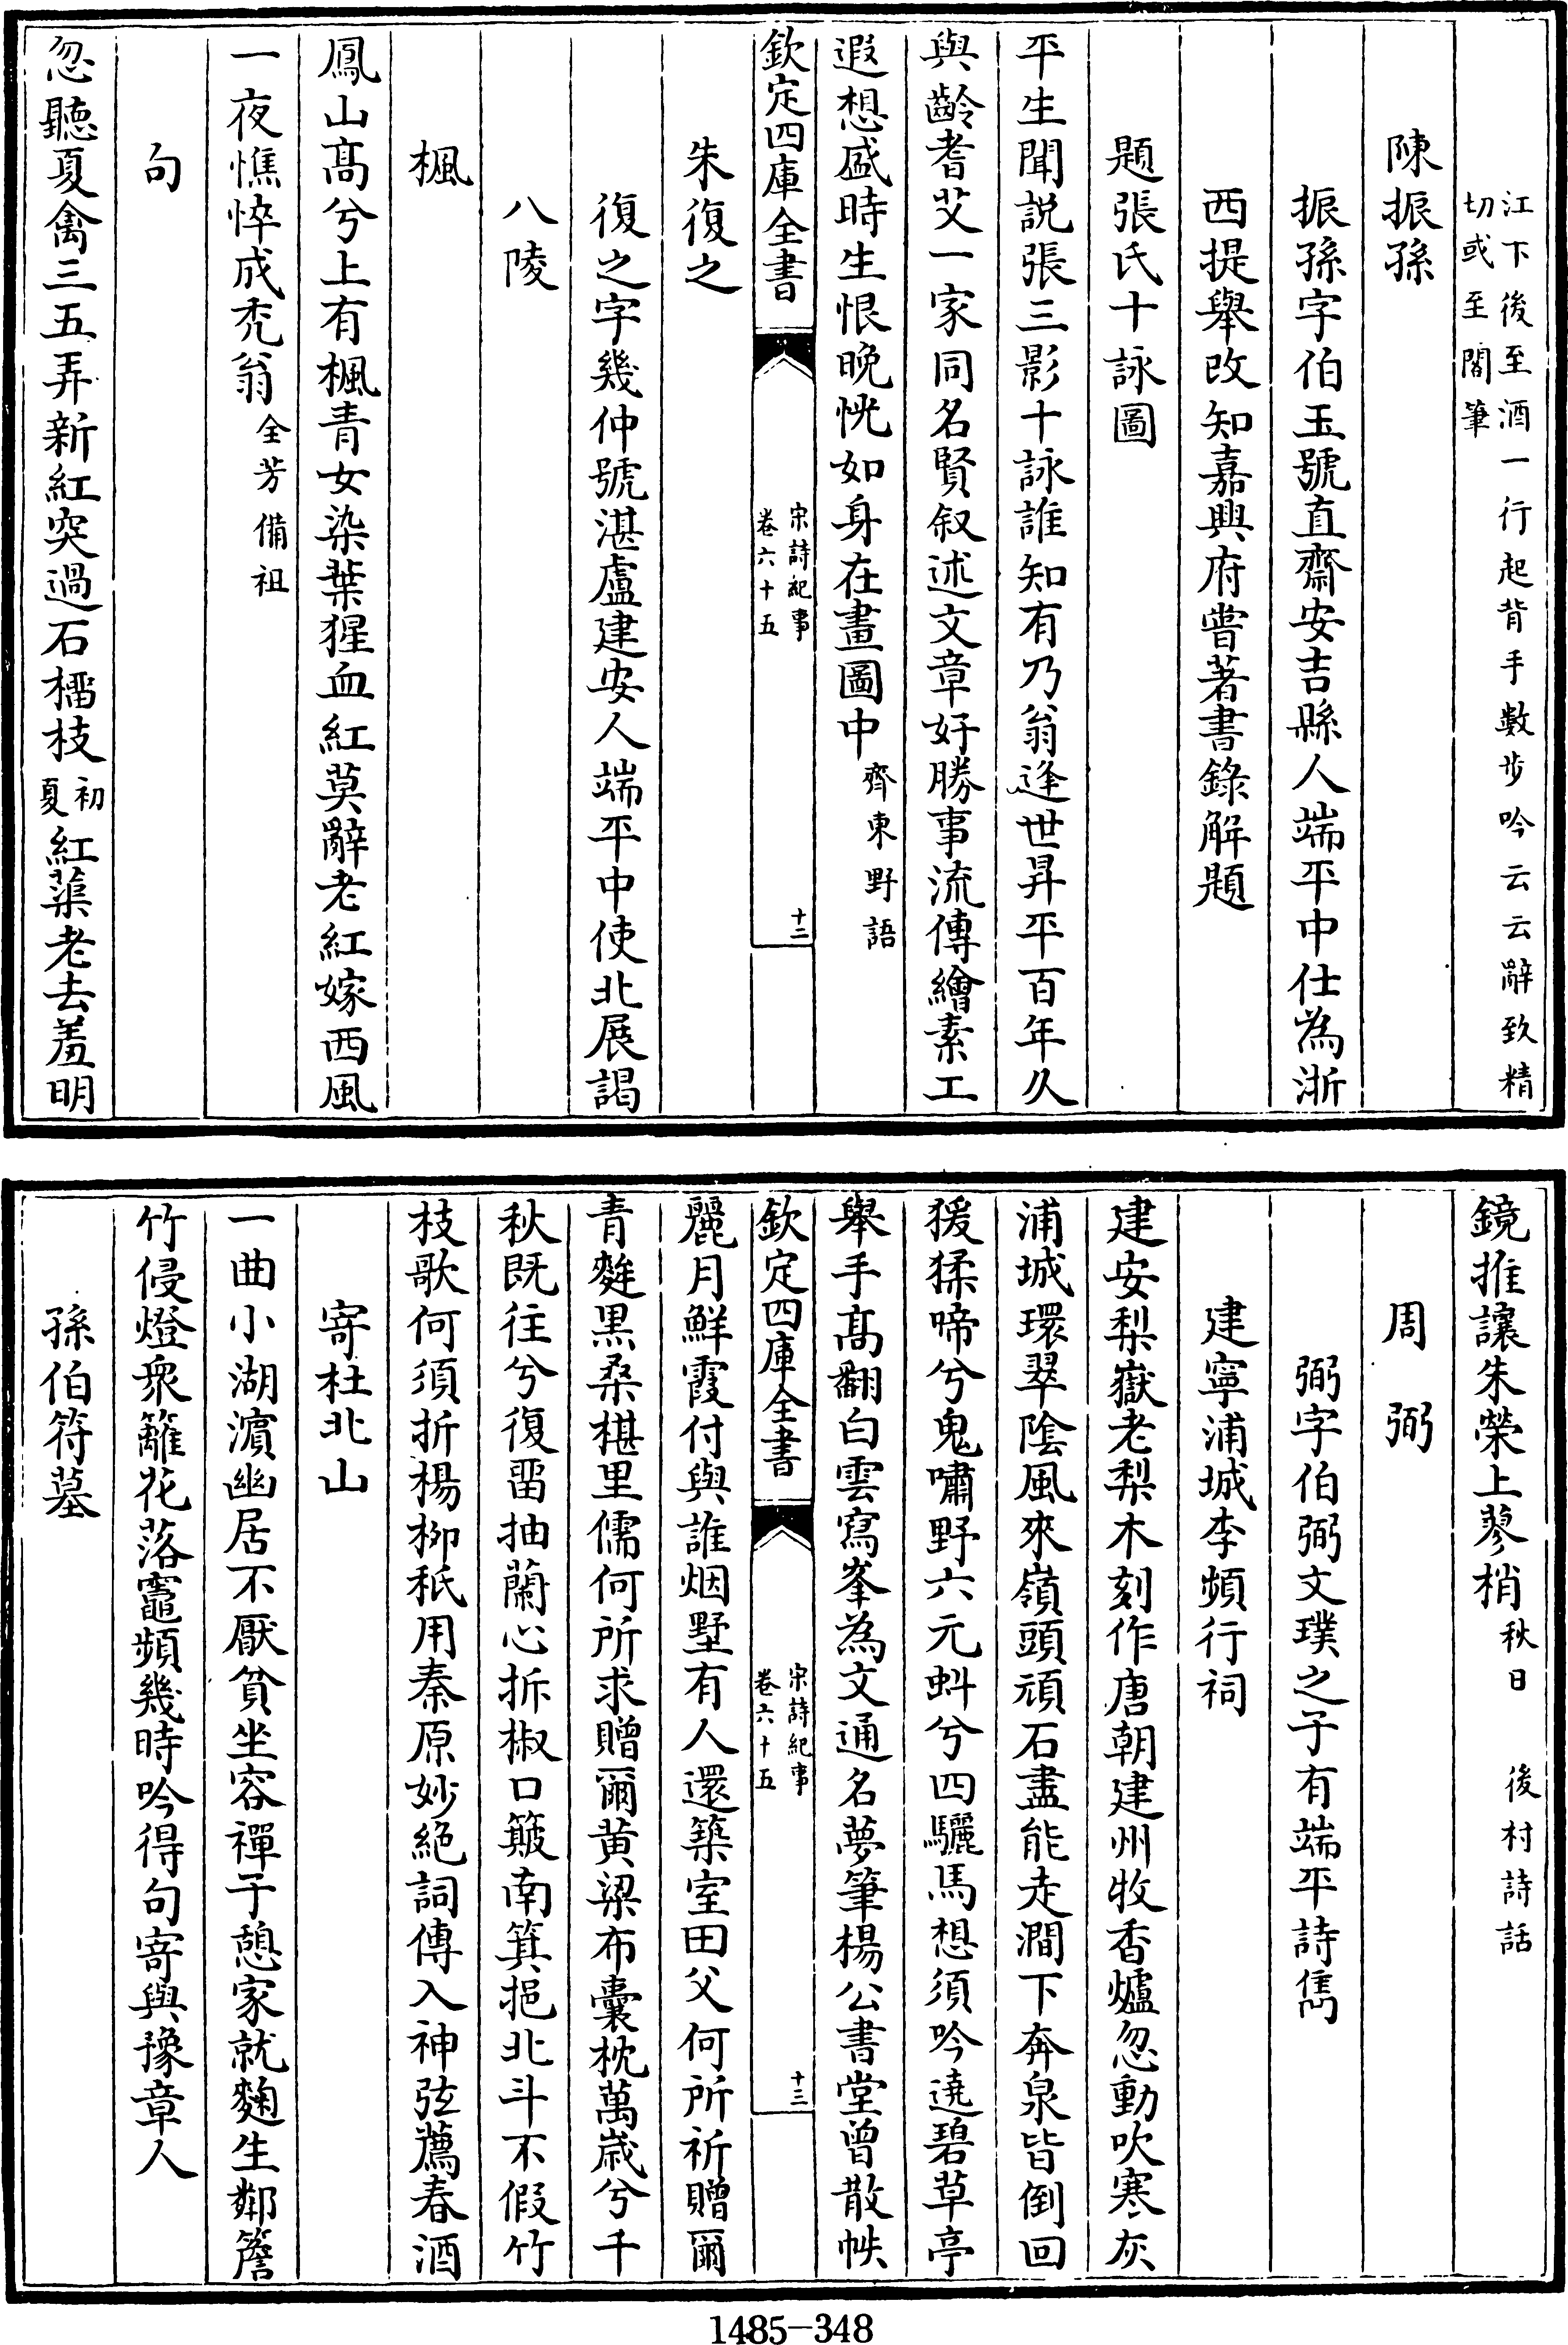 江下後至酒一行起背手數步吟云云辭致精
切或至閣筆
陳振孫
振孫字伯玉號直齋安吉縣人端平中仕為浙
西提舉改知嘉興府嘗著書錄解題
題張氏十詠圖
平生聞説張三影十詠誰知有乃翁逢世昇平百年久
與齡耆艾一家同名賢叙述文章好勝事流傳繪素工
遐想盛時生恨晚恍如身在畫圖中齊東野語
欽定四庫全書
宋詩紀事
卷六十五
十二
朱復之
復之字幾仲號湛盧建安人端平中使北展謁
八陵
楓
鳳山髙兮上有楓青女染葉猩血紅莫辭老紅嫁西風
一夜憔悴成禿翁全芳備祖
句
忽聽夏禽三五弄新紅突過石橊枝初夏紅蕖老去羞明
鏡推讓朱榮上蓼梢秋日 後村詩話
周弼
弼字伯弼文璞之子有端平詩雋
建寧浦城李頻行祠
建安梨嶽老梨木刻作唐朝建州牧香爐忽動吹寒灰
浦城環翠陰風來嶺頭頑石盡能走澗下奔泉皆倒回
猨猱啼兮鬼嘯野六元蚪兮四驪馬想須吟遶碧草亭
舉手髙翻白雲寫峯為文通名夢筆楊公書堂曾散帙
欽定四庫全書
宋詩紀事
卷六十五
十三
麗月鮮霞付與誰烟墅有人還築室田父何所祈贈爾
青麰黒桑椹里儒何所求贈爾黄粱布囊枕萬歳兮千
秋既往兮復畱抽蘭心拆椒口簸南箕挹北斗不假竹
枝歌何須折楊柳秖用秦原妙絶詞傳入神弦薦春酒
寄杜北山
一曲小湖濵幽居不厭貧坐容禪子憩家就麴生鄰簷
竹侵燈衆籬花落竈頻幾時吟得句寄與豫章人
孫伯符墓
1485-348